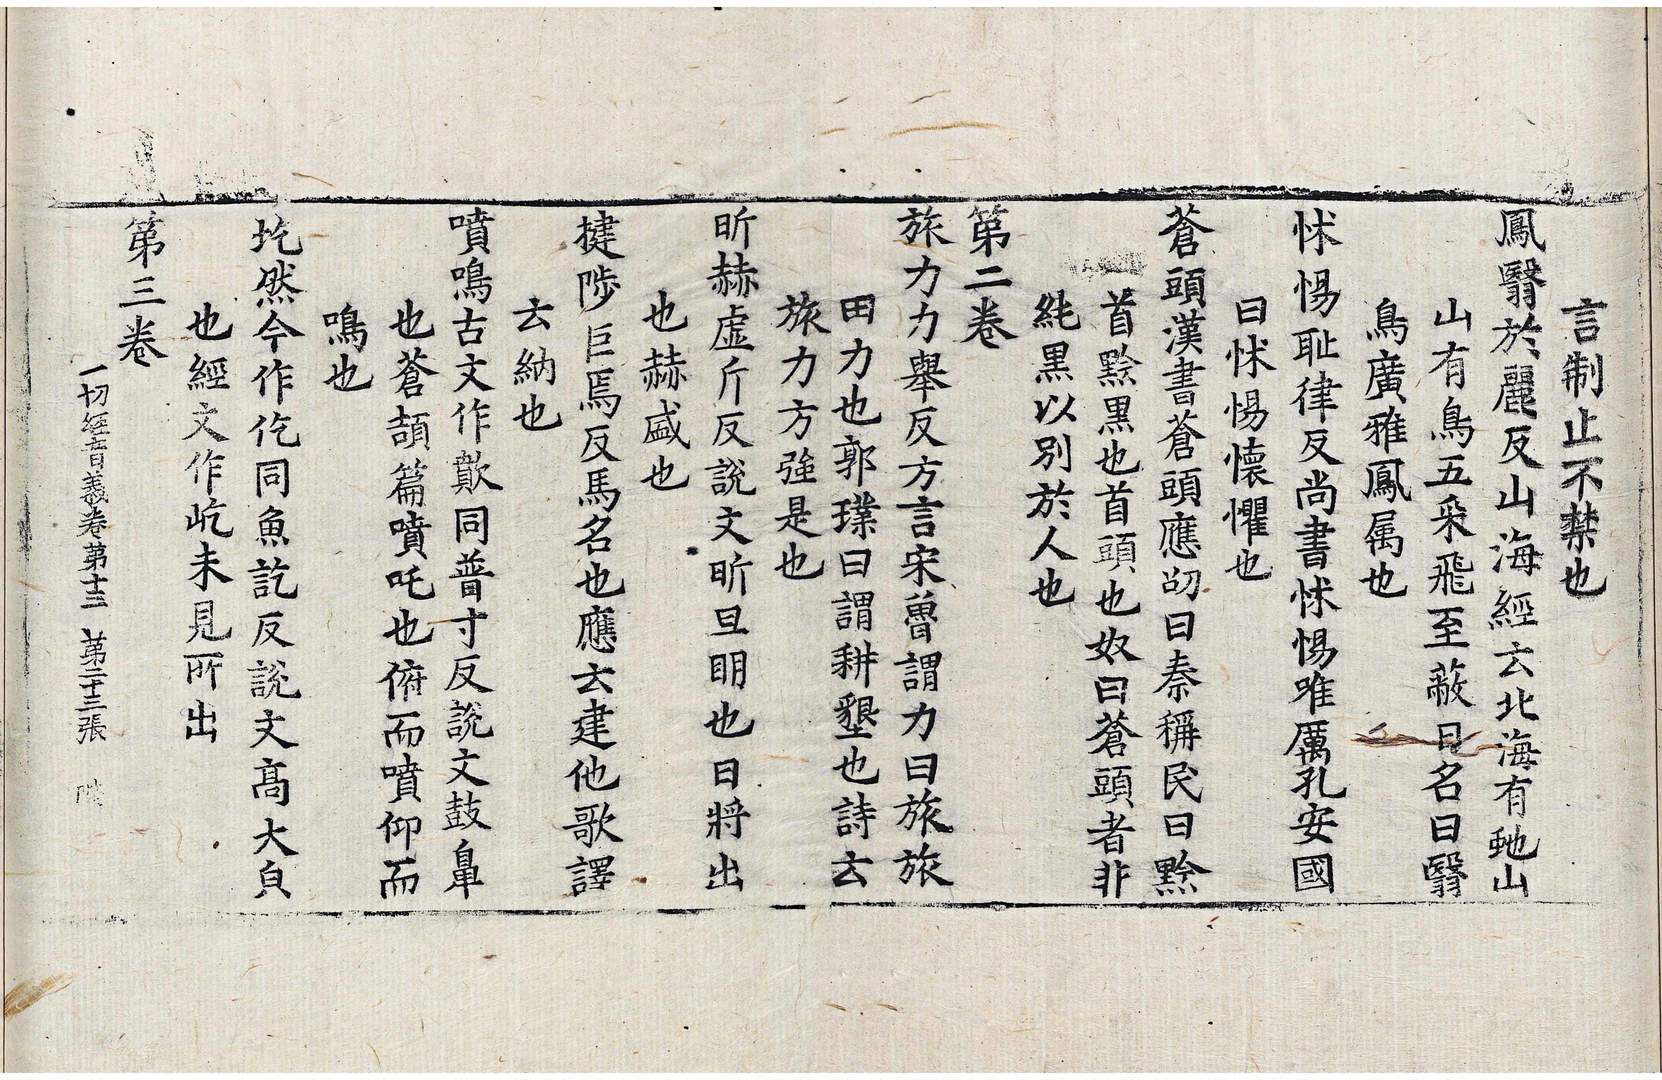 言制止不禁也
鳳翳於麗反山海經云北海有虵山
山有鳥五采飛至蔽日名曰翳
鳥廣雅鳳属也
怵惕耻律反尚書怵惕唯厲孔安國
曰怵惕懷懼也
蒼頭漢書蒼頭應劭曰秦稱民曰黔
首黔黑也首頭也奴曰蒼頭者非
純黒以别於人也
第二卷
旅力力舉反方言宋魯謂力曰旅旅
田力也郭璞曰謂耕墾也詩云
旅力方強是也
昕赫虚斤反説文昕旦明也日將出
也赫盛也
揵陟巨焉反馬名也應云建他歌譯
云納也
噴鳴古文作歕同普寸反説文鼓鼻
也蒼頡篇噴吒也俯而噴仰而
鳴也
圪然今作仡同魚訖反説文高大皃
也經文作屹未見所出
第三卷
一切經音義卷第十三 第二十三張